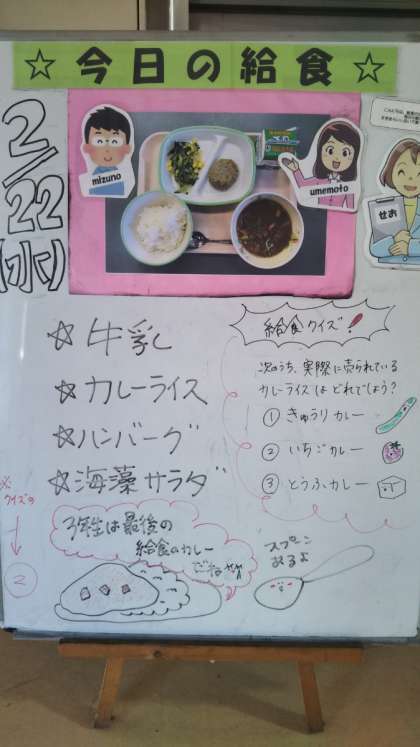 ☆今日の給食☆
2/22
(水)
mizuno
umemoto
せお
☆牛乳
☆カレーライス
☆ハンバーグ
☆海藻サラダ
給食クイズ!
次のうち、実際に売られている
カレーライスはどれでしょう?
① きゅうりカレー
② いちごカレー
③ とうふカレー
※
クイズの
↓
②
3年生は最後の
給食のカレー
スプーン
あるよ